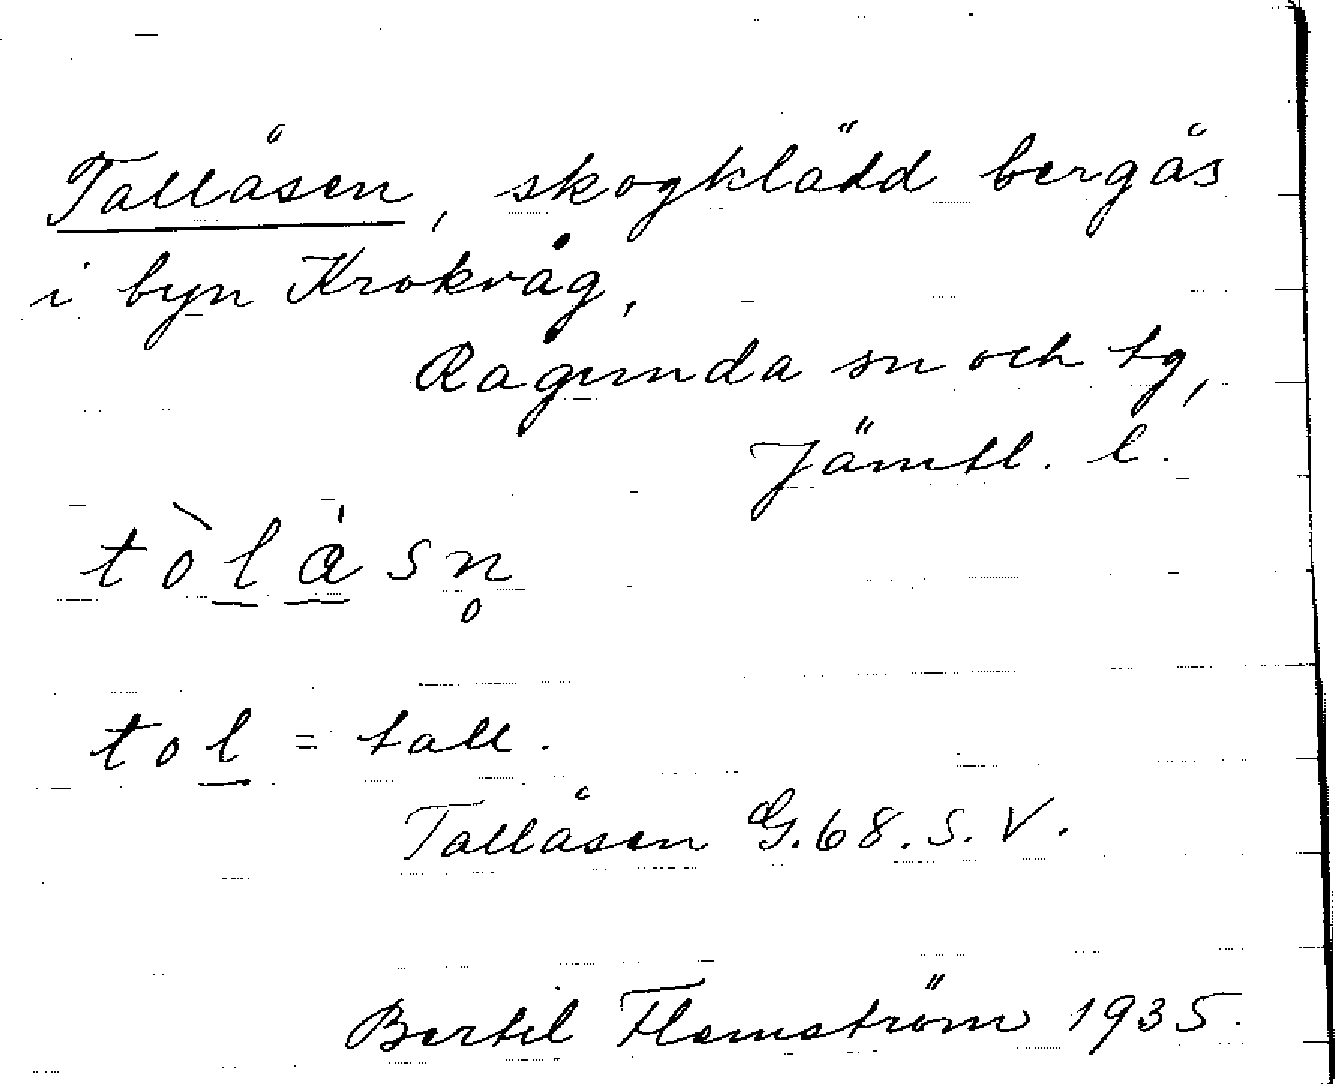 Tallåsen, skogklädd bergås
i byn Krokvåg,
Ragunda sn och tg,
Jämtl. l.
tòlàsn̥
tol = tall.
Tallåsen G.68.S.V.
Bertil Flemström 1935.